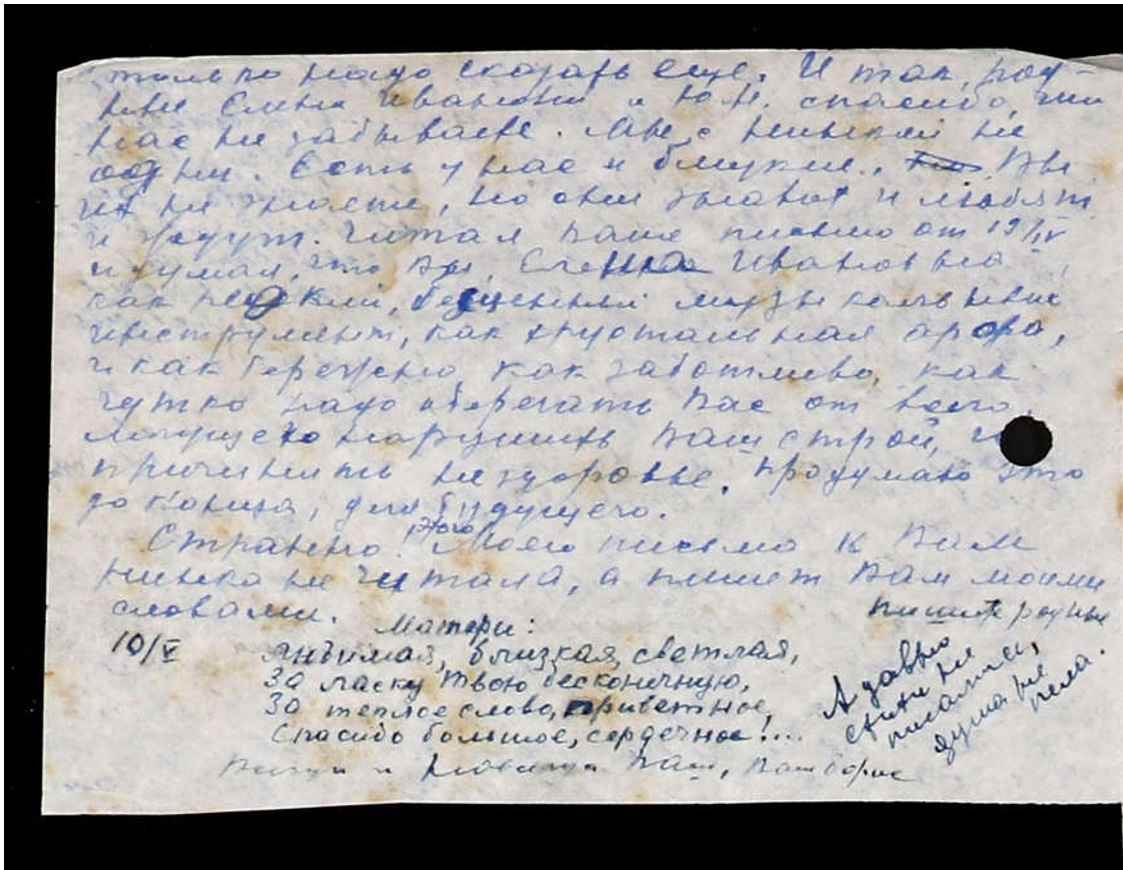 столько надо сказать еще. И так, род-
ные Елена Ивановна и Ю.Н. спасибо, что
нас не забываете. Мы с нинкой не
одни. Есть у нас и близкие. Вы
их не знаете, но они знают и любят
и ждут. Читал Ваше письмо от 19/IV
и думал, что Вы, Елена Ивановна,
как редкий, бесценный музыкальный
инструмент, как хрустальная арфа,
и как бережно, как заботливо, как
чутко надо оберегать Вас от всего,
могущего нарушить Ваш строй,
причинить нездоровье. Продумаю это
до конца, для будущего.
Странно. Этого моего письма к Вам
нинка не читала, а пишет Вам моими
словами. пишите родные
10/V Матери:
Любимая, близкая, светлая,
За ласку твою бесконечную,
За теплое слово, приветное,
Спасибо большое, сердечное!...
Ваш, Ваш Борис
А давно
стихи не
писались,
душа не
пела.